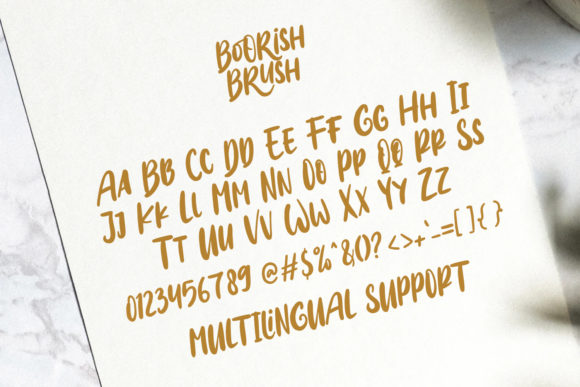 BOORISH
BRUSH
Aa Bb Cc Dd Ee Ff Gg Hh Ii
Jj Kk Ll Mm Nn Oo Pp Qq Rr Ss
Tt Uu Vv Ww Xx Yy Zz
0123456789 @#$%^&()? <>+`-=[]{}
MULTILINGUAL SUPPORT